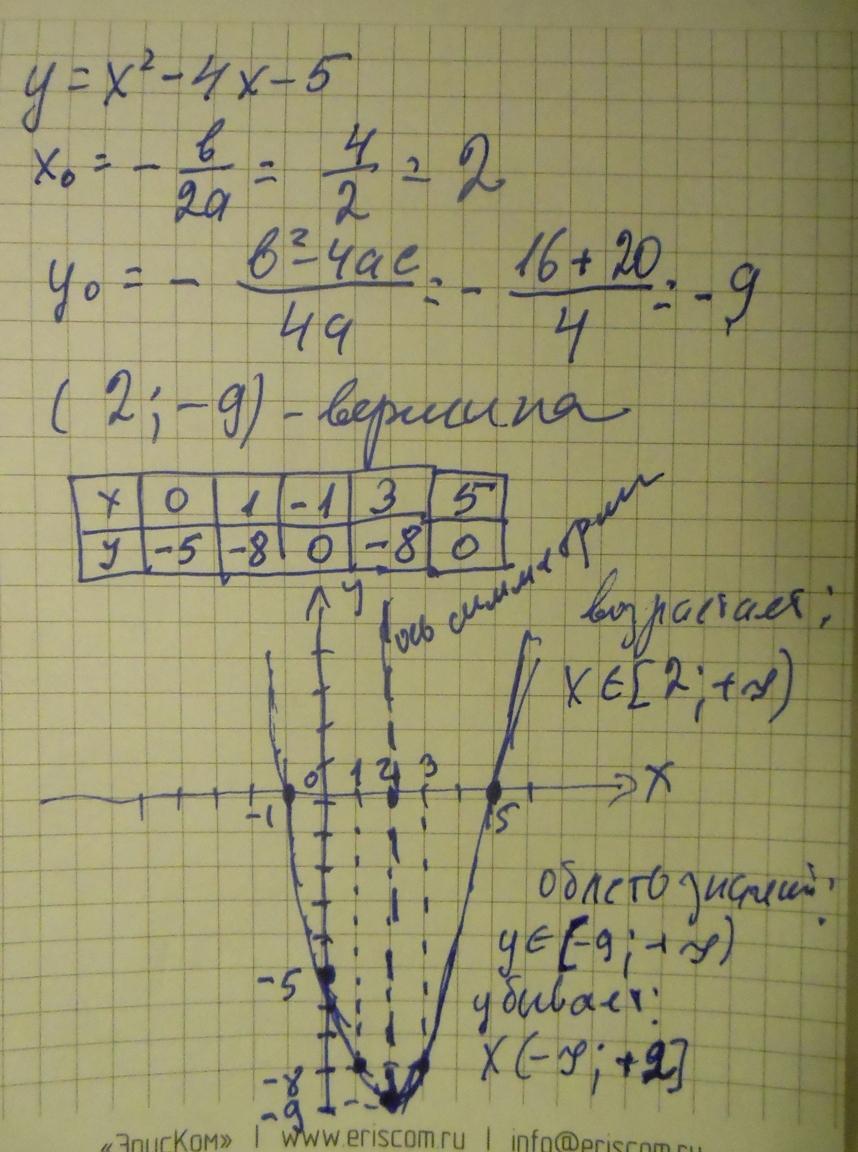 y = x² - 4x - 5
x₀ = - в/2a = 4/2 = 2
y₀ = - в² - 4ac/4a = - 16 + 20/4 = - 9
(2; -9) - вершина
x 0 1 -1 3 5
y -5 -8 0 -8 0
ось симметрии
y
возрастает:
x ∈ [2; +∞)
-1 0 1 2 3 5 x
область значений:
y ∈ [-9; +∞)
-5
убывает:
x (-∞; +2]
-8
-9
«ЭрисКом» | www.eriscom.ru | info@eriscom.ru